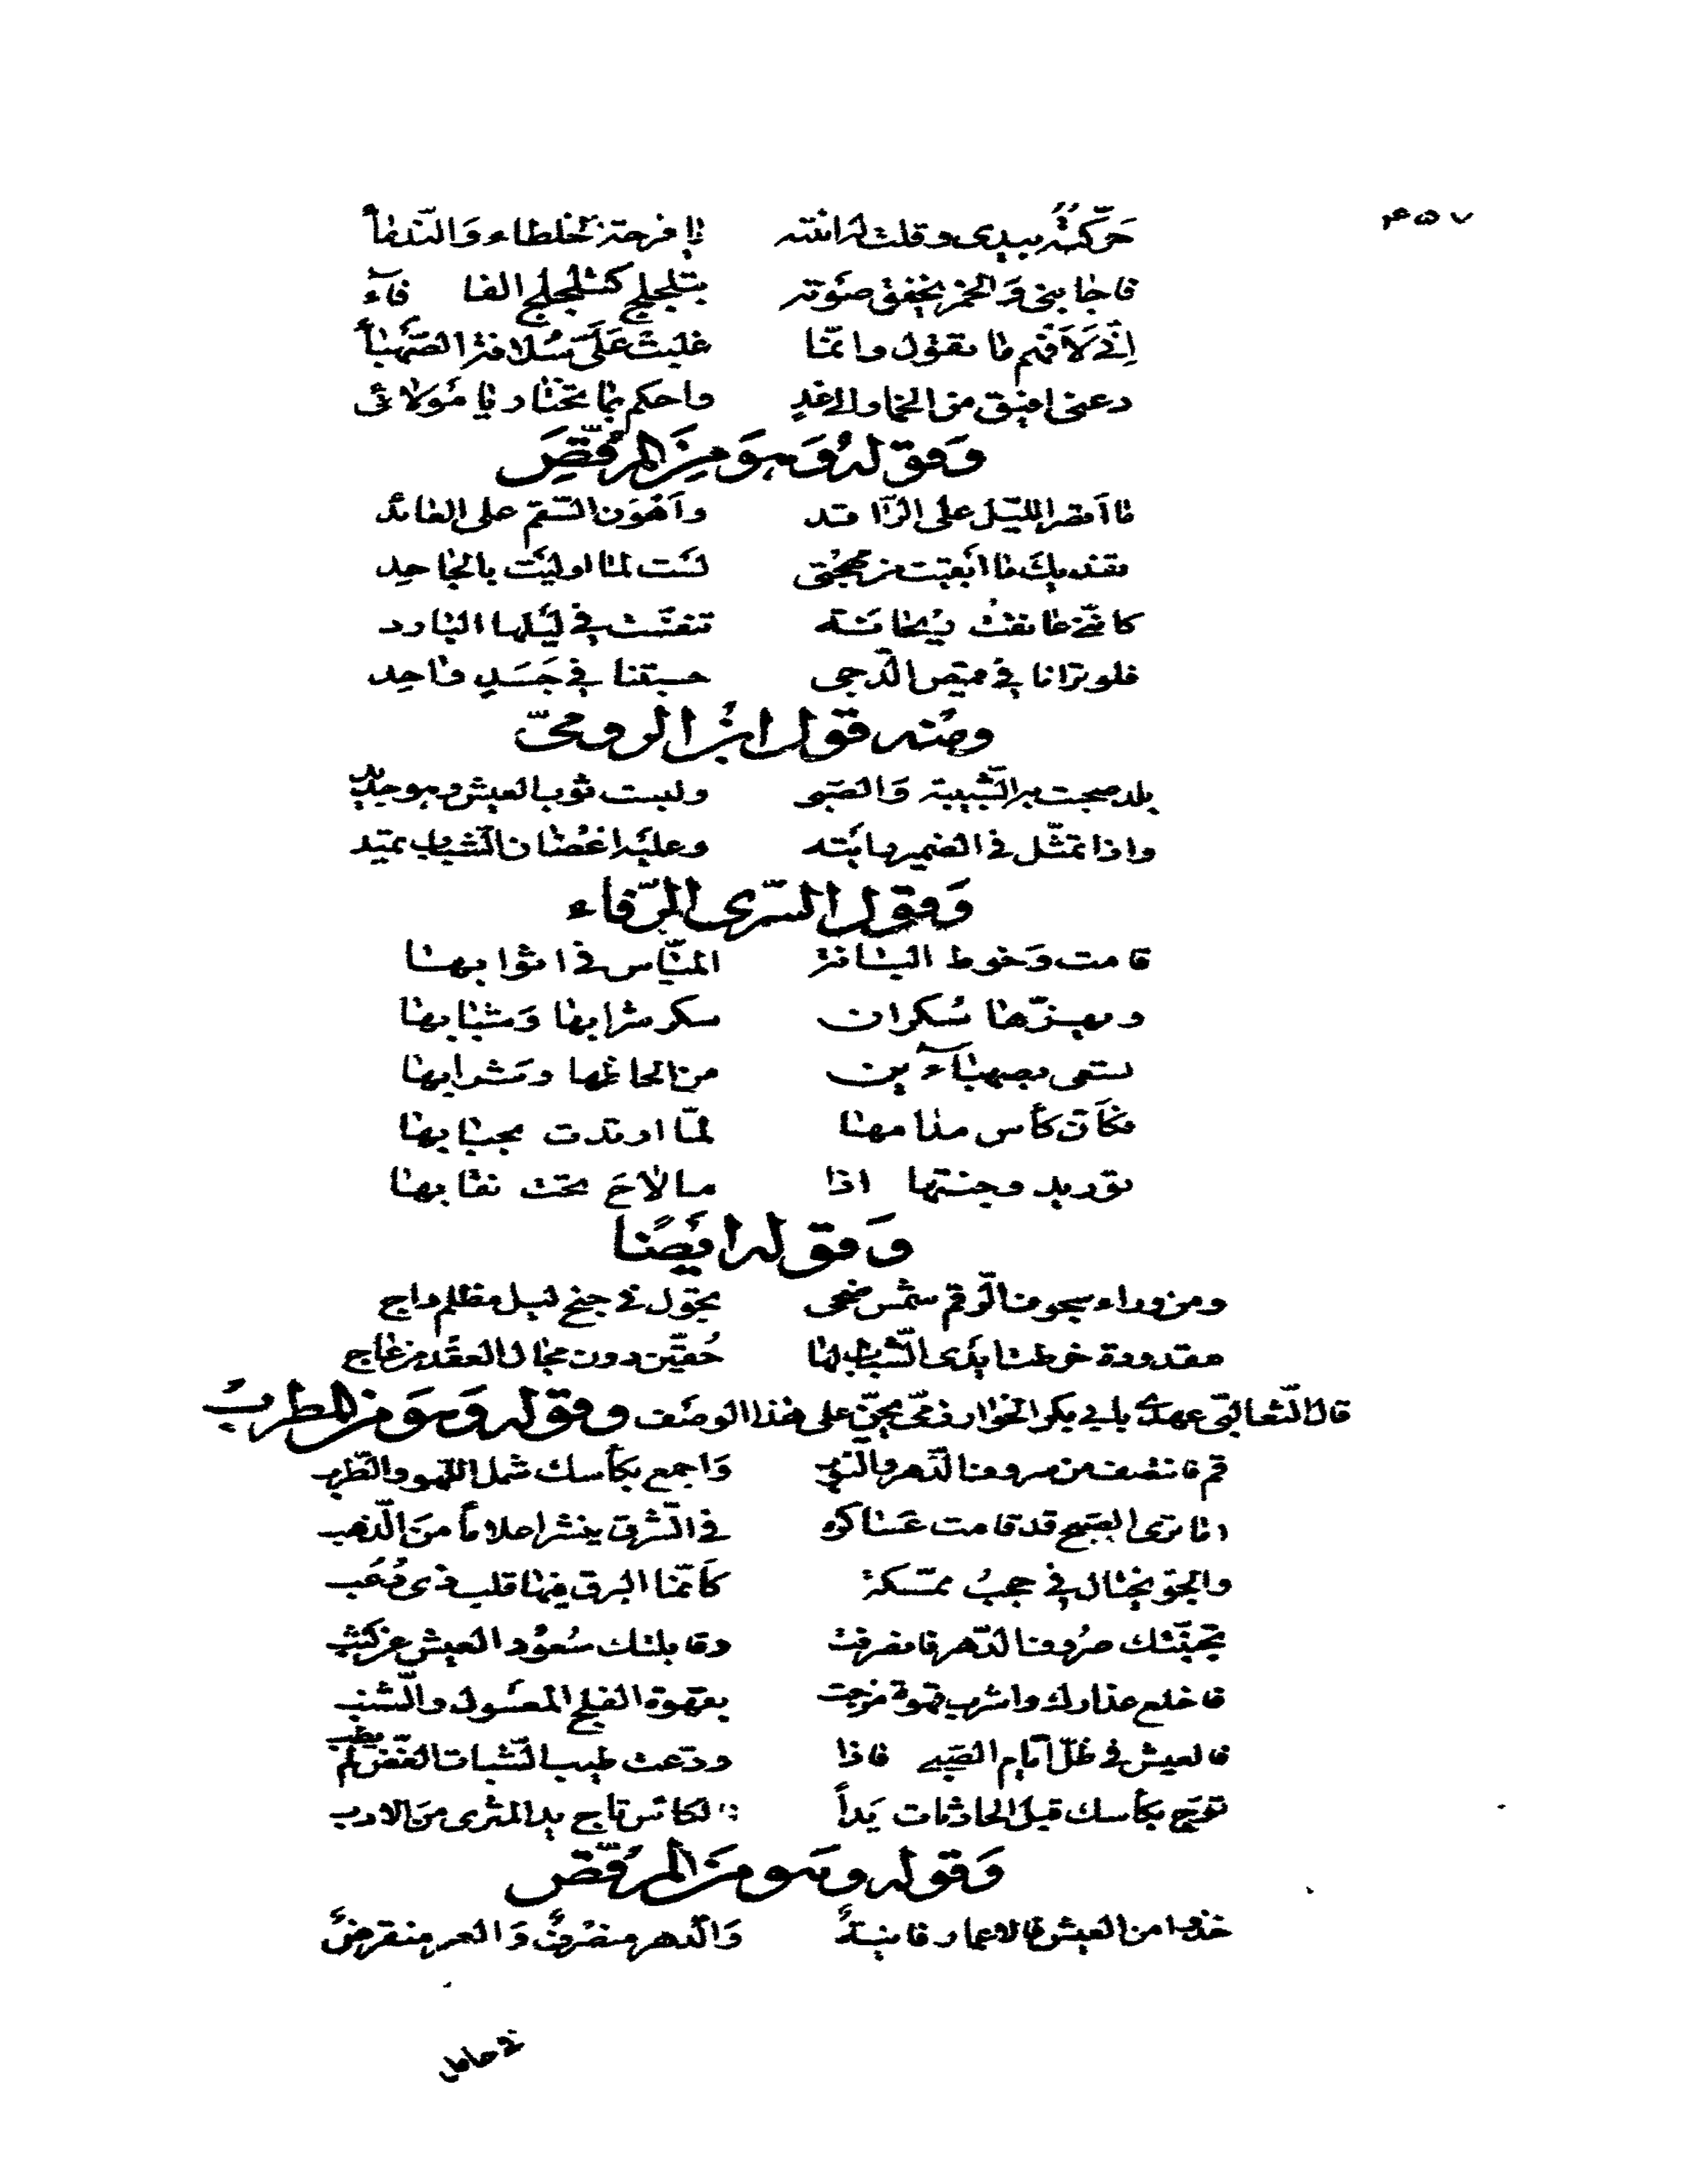 ٤٥٧
حَرَّكتُه بيدى وقلت له انتبه يا فرحة الخلطاء وَالندمأ
فاجابنى وَالخمر يخفض صَوته بتلجلج كتلجلج الفا فآء
اِنّى لَاَفهم ما تقول وانما غلبت عَلَىَّ سُلافة الصَّهبأ
دعنى افيق من الخمار الى غدٍ واحكم بما تختار يا مَولائى
وَقوله وَهوَ مِنَ المرقّصِ
ما اَقصر الليل على الرّاقد وآهْوَن السّقم على العائد
تفديك ما ابقيت من مهجتى لسَت لما اوليت بالجاحِد
كاننى عانقت ريحانة تنفست فى لَيلها البارد
فلو ترانا فى قميص الدجى حسبتنا فى جَسَدٍ واحِد
ومنه قول ابن الرومىّ
بلد صحبت به الشّبيبة وَالصبى ولبست ثوب العيش وهو جديد
واذا تمثّل فى الضمير رايته وعليَه اغصان الشباب تميد
وَقول السّرى الرّفاء
قامت وَخوط البانة الميّاس فى اثوابها
ويهزّها سُكران سكر شرابها وَشبابها
تسعى بصهباَء ين من الحاظها وشرابها
فكأن كأس مدامها لمّا ارتدت بحبابها
توريد وجنتها اذا ما لاَحَ تحت نقابها
وَقوله ايضًا
ومن وراء سجوف الرقم شمس ضحى تجول فى جنح ليل مظلم داج
مقدودة خرطت ايدى الشباب لها حُقّين دون مجال العقد من عاج
قال الثعالبى عهدى بابى بكر الخوارزمى يجنّ على هذا الوصَف وقوله وَهوَ من المطربُ
قم فانتصف من صروف الدهر والنوب وَاجمع بكأسك شمل اللهو والطرب
اما ترى الصبح قد قامت عَساكره فى الشرق ينشر اعلاماً منَ الذهب
والجو يختال فى حجبُ ممسّكة كَأنّما البرق فيها قلب ذى رُعُب
تجنّبتك صُروف الدّهر فانصرفت وقابلتك سُعوُد العيش عن كثب
فاخلع عذارك واشرب قهوة مزجت بقهوة الفلج المعسَول والشنب
فالعيش فى ظلّ ايّام الصّبى فاذا ودّعت طيب الشباب الغضّ لم يطب
توّج بكأسك قبل الحادثات يَداً فالكاس تاج يد المثرى منَ الادب
وَقوله وهو منَ المرقّص
خذوا من العيش فالاعمار فانيةً وَالدهر منصَرفٌ وَالعمر منقرضٌ